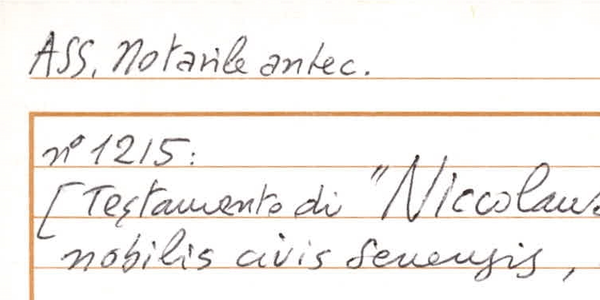 ASS. Notarile antec.
n° 1215:
[Testamento di "Niccolaus
nobilis civis senensis,